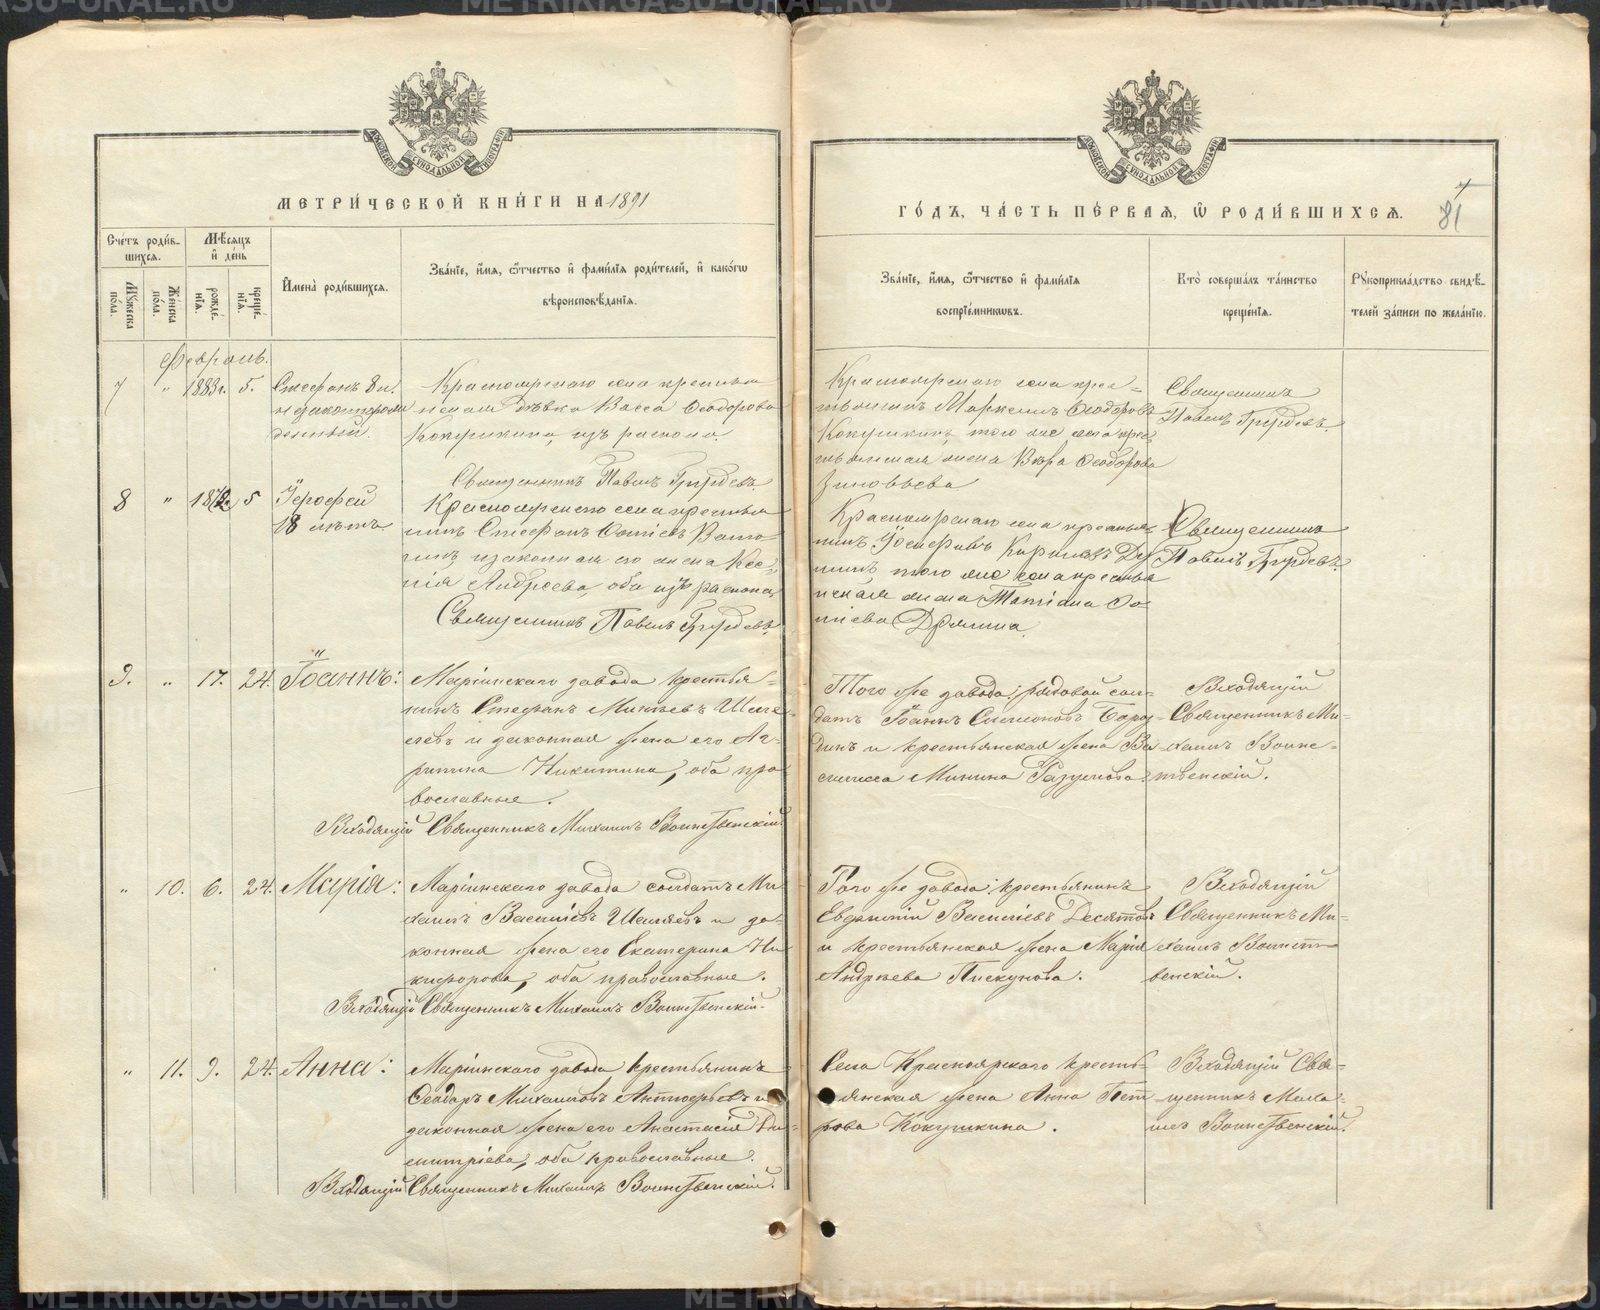 МЕТРИ́ЧЕСКОЙ КНИ́ГИ НА 1891
Счетъ роди́в-
шихся.
Мꙋжеска
пола.
Же́нска
пола.
Мѣсяцъ
и҆ де́нь
рожде́-
нїѧ.
креще́-
нїѧ.
И҆мена̀ роди́вшихся.
Зва́нїе, и҆́мѧ, ѻ҆́тчество и҆ фами́лїѧ роди́телей, и҆ како́гѡ
вѣроисповѣ́данїѧ.
Февраль.
7 " 1883 г. 5. Стефанъ 8 л.
незаконнорож
денный.
Красноярскаго села крестьян
нская дѣвка Васса Ѳеодорова
Кокушкина, изъ раскола.
Священникъ Павелъ Груздевъ.
8 " 1872 5 Іероѳей
18 лѣтъ
Красноярскаго села крестьян
нинъ Стефанъ
и законная его жена
нія Андреева, оба изъ раскола,
Священникъ Павелъ Груздевъ.
9. " 17. 24. Іоаннъ:
Маріинскаго завода крестья-
нинъ Стефанъ
и законная жена его Аг-
рипина Никитина, оба пра-
вославные.
Входящій Священникъ Михаилъ Воинственскій.
" 10. 6. 24. Марія:
Маріинскаго завода солдатъ Ми
хаилъ Васильевъ Шаляевъ и за-
конная жена его Екатерина Ни
кифорова, оба православные.
Входящій Священникъ Михаилъ Воинственскій.
" 11. 9. 24. Анна:
Маріинскаго завода крестьянинъ
Ѳеодоръ Михаиловъ Антоѳьевъ и
законная жена его Анастасія Ди-
митріева, оба православные.
Входящій Священникъ Михаилъ Воинственскій.
ГО́ДЪ, ЧА́СТЬ ПЕ́РВАѦ, Ѽ РОДИ́ВШИХСѦ.
81
Зва́нїе, и҆́мѧ, ѻ҆́тчество и҆ фами́лїѧ
воспрїе́мникѡвъ.
Кто̀ соверша́лъ та́инство
креще́нїѧ.
Рꙋкоприкла́дство свидѣ́-
телей за́писи по жела́нїю.
Красноярскаго села крес-
тьянинъ Маркелъ Ѳеодоровъ
Кокушкинъ, того же села крес
тьянская жена Вѣра Ѳеодорова
Зиновьева
Священникъ
Павелъ Груздевъ.
Красноярскаго села крестья
нинъ
того же села крестья
нская жена Татіана
Дрягина.
Священникъ
Павелъ Груздевъ.
Того же завода: рядовой сол-
датъ Іоаннъ Симеоновъ Боро-
динъ и крестьянская жена Ва-
силисса Минина Разумова.
Входящій
Священникъ Ми-
хаилъ Воинс-
твенскій.
Того же завода: крестьянинъ
Евдокимій Васильевъ Десятовъ
и крестьянская жена Марія
Андреева Пискунова.
Входящій
Священникъ Ми-
хаилъ Воинст-
венскій.
Села Красноярскаго кресть-
янская жена Анна Пет-
рова Кокушкина.
Входящій Свя-
щенникъ Миха-
илъ Воинственскій.